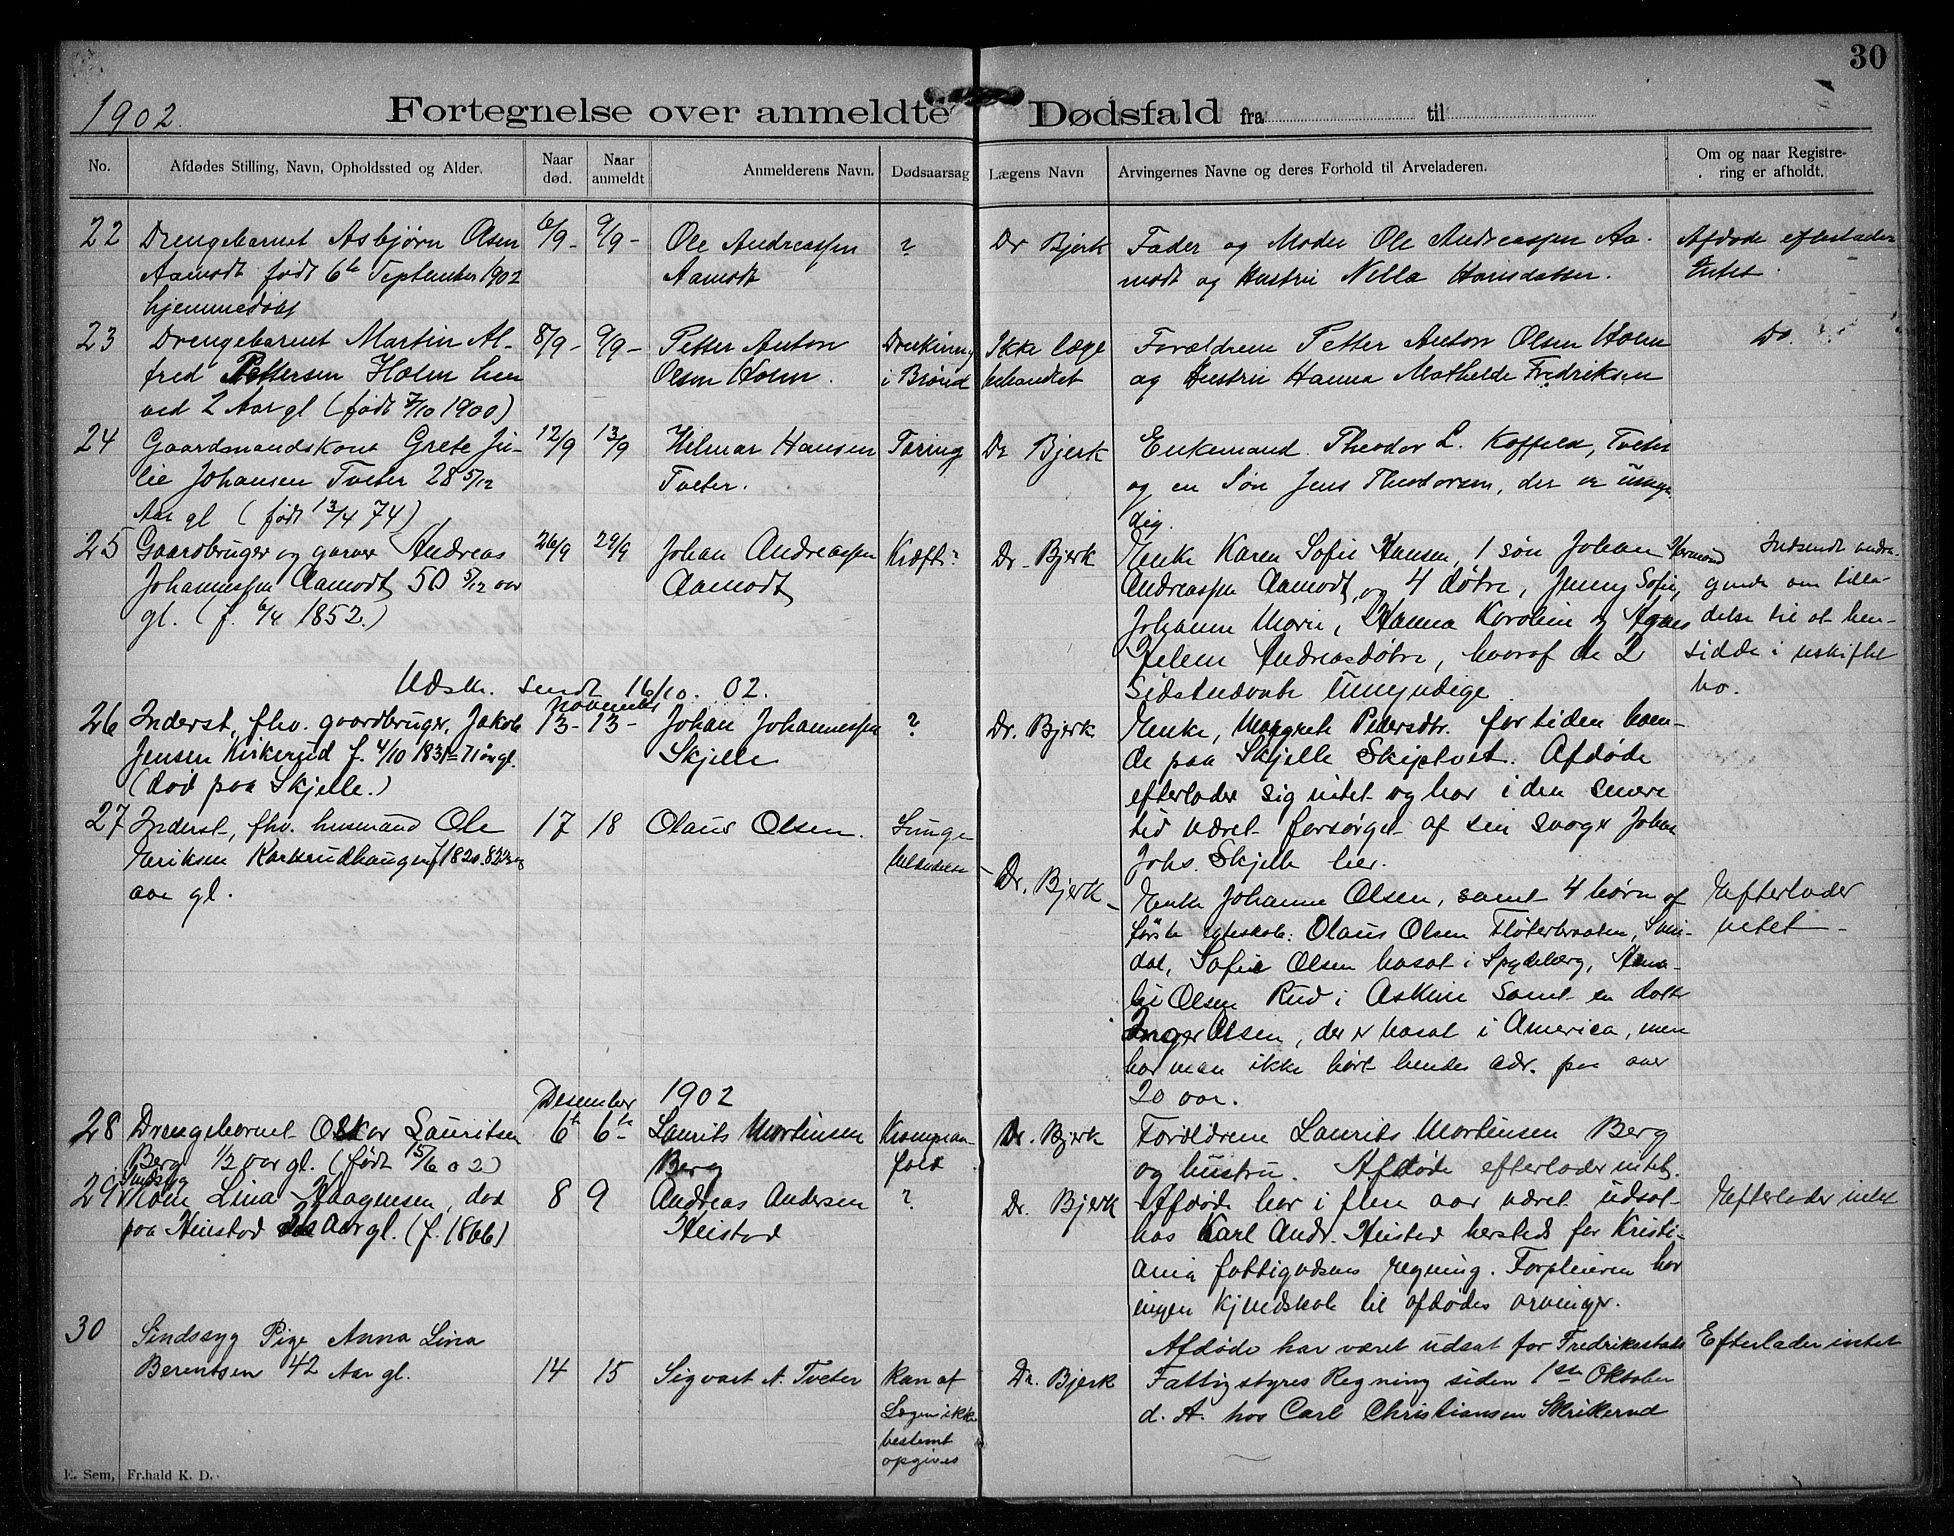 30
1902.
Fortegnelse over anmeldte Dødsfald fra til
No. Afdødes Stilling, Navn, Opholdssted og Alder. Naar død. Naar anmeldt Anmelderens Navn. Dødsaarsag Lægens Navn Arvingernes Navne og deres Forhold til Arveladeren. Om og naar Registrering er afholdt.
22 Drengebarnet Asbjørn Olsen 6/9- 9/9- Ole Andreassen ? Dr Bjerk Fader og Moder Ole Andreassen Aa- Afdøde efterlader
Aamodt født 6te September 1902 Aamodt modt og Hustru Nilla Hansdatter. Intet.
hjemmedøbt
23 Drengebarnet Martin Al- 8/9- 9/9- Petter Anton Drukning Ikke læge Forældrene Petter Anton Olsen Holm Do.
fred Pettersen Holm hen Olsen Holm. i Brønd behandlet og Hustru Hanna Mathilde Fredriksen
ved 2 Aar gl (født 7/10 1900)
24 Gaardmandskone Grete Ju- 12/9 13/9 Hilmar Hansen Tæring Dr Bjerk Enkemand Theodor L. Koffeld, Tveter
lie Johansen Tveter 28 5/12 Tveter. og en Søn Jens Theodorsen, der er umyn-
Aar gl (født 13/4 74) dig.
25 Gaardbruger og garver Andreas 26/9 29/9 Johan Andreassen Kræft? Dr. Bjerk Enke Karen Sofie Hansen, 1 søn Johan Hermand Indsendt andra-
Johannessen Aamodt 50 5/12 aar Aamodt Andreassen Aamodt og 4 døtre, Jenny Sofie, gende om tilla-
gl. (f. 6/4 1852.) Johanne Marie, Hanna Karoline og Agnes delse til at hen-
Helene Andreasdøtre, hvoraf de 2 sidde i uskiftet
Udskr. sendt 16/10. 02. sidstnævnte Umyndige. bo.
November
26 Inderst, fhv. gaardbruger, Jakob 13- 13- Johan Johannessen ? Dr. Bjerk Enke, Margrete Pedersdtr. for tiden boen-
Jensen Kirkerud f. 4/10 1831 = 71 år gl. Skjelle de paa Skjelle Skiptvet. Afdøde
(død paa Skjelle.) efterlader sig intet og har i den senere
27 Inderst, fhv. husmand Ole 17 18 Olaus Olsen. Lunge tid været forsørget af sin svoger Johan
Eriksen Karlsrudhaugen f 1820. 82 betændelse Johs. Skjelle her.
aar gl. Dr. Bjerk Enke Johanne Olsen, samt 4 børn af Efterlader
første egteskab: Olaus Olsen Fløterbraaten, Svin- intet
dal, Sofie Olsen bosat i Spydeberg, Ama-
lie Olsen Rud i Askim samt en datter
Inger Olsen, der er bosat i America, men
har man ikke hørt hendes adr. paa over
Desember 1902 20 aar.
28 Drengebarnet Oskar Lauritsen 6te 6te Laurits Mortinsen Krampean- Dr. Bjerk Forældrene Laurits Mortinsen Berg
Berg 1/2 aar gl. (født 15/6 02) Berg fald og hustru. Afdøde efterlader intet.
Sindsyg
29 Kone Lina Haagensen, død 8 9 Andreas Andersen ? Dr. Bjerk Afdøde har i flere aar været udsat Efterlader intet
paa Heistad Aar gl. (f. 1866) Heistad hos Karl Andr. Heistad hersteds for Kristi-
ania fattigvæsens regning. Forpleieren har
ingen kjendskab til afdødes arvinger.
30 Sindssyg Pige Anna Lina Afdøde har været udsat for Fredrikstads Efterlader intet
Berentsen 42 Aar gl. 14 15 Sigvart A. Tveter kan af Dr. Bjerk Fattigstyres Regning siden 1ste Oktober
Lægen ikke d. A. hos Carl Christiansen Skrikerud
bestemt
opgives
E. Sem, Fr.hald K. D.